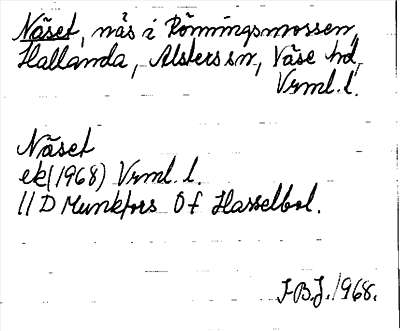 Näset, näs i Rönningsmossen,
Hallanda, Alsters sn, Väse hd,
Vrml. l.
Näset
ek (1968) Vrml. l.
11 D Munkfors 0 f Hasselbol.
J.B.J. 1968.